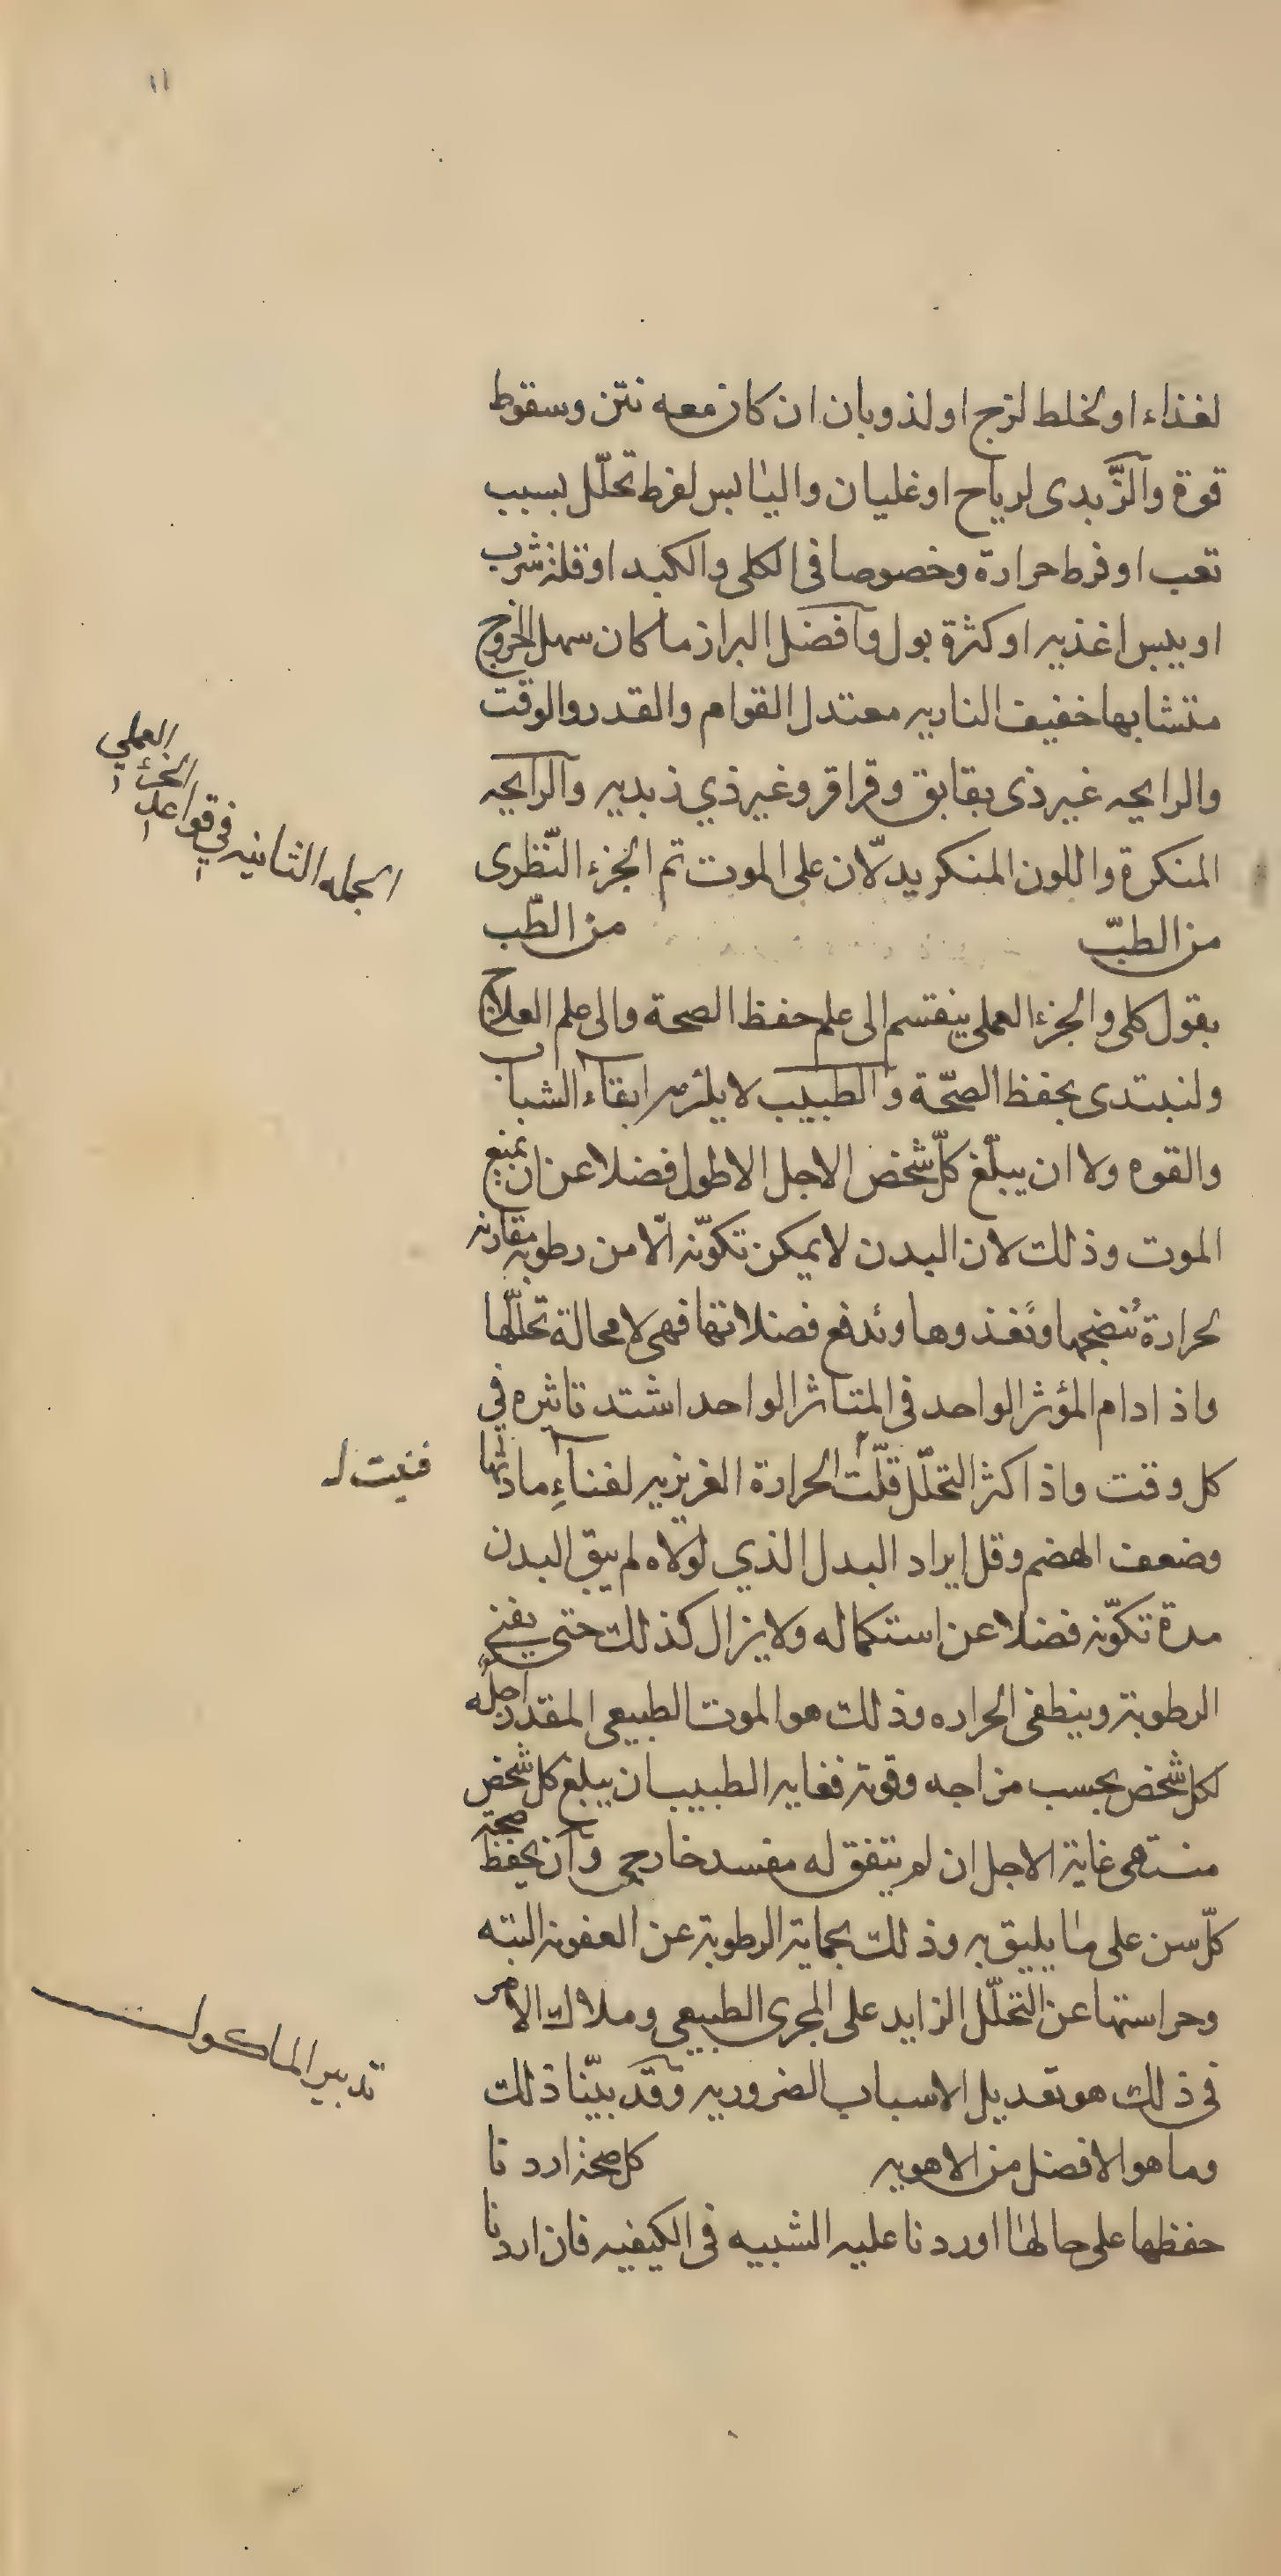 ١١
لغذاء او لخلط لزج او لذوبان ان كان معه نتن وسقوط
قوة والزّبدى لرياح او غليان واليابس لفرط تحلّل بسبب
تعب او فرط حرارة وخصوصا فى الكلى والكبد او قلة شرب
او يبس اغذيه او كثرة بول وافضل البراز ما كان سهل الخروج
متشابها خفيف الناريه معتدل القوام والقدر والوقت
والرايحه غير ذى بقابق وقراقر وغير ذي زبديه والرايحه
المنكرة واللون المنكر يدلّان على الموت تم الجزء النّظرى
من الطبّ من الطّب
الجمله الثانيه في قواعد
الجزء
العملي
بقول كلى والجزء العملى ينقسم الى علم حفظ الصحة والى علم العلاج
ولنبتدى بحفظ الصّحة والطبيب لا يلزمه ابقاء الشباب
والقوه ولا ان يبلّغ كلّ شخص الاجل الاطول فضلا عن ان يمنع
الموت وذلك لان البدن لا يمكن تكوّنه الّا من رطوبه مقارنه
لحرارة تنضجها وتغذوها وتدفع فضلاتها فهى لا محالة تحللّها
واذا دام المؤثر الواحد فى المتاثر الواحد اشتد تاثيره في
كل وقت واذا كثر التحلّل قلّت الحرارة الغريزيه لفناءِ مادتها
فنيت
وضعف الهضم وقل ايراد البدل الذي لولاه لم يبق البدن
مدة تكوّنه فضلا عن استكماله ولا يزال كذلك حتى يفنى
الرطوبة وينطفى الحراره وذلك هو الموت الطبيعى المقدر اجله
لكل شخص بحسب مزاجه وقوته فغايه الطبيب ان يبلغ كل شخص
منتهى غاية الاجل ان لم يتفق له مفسد خارجى وان يحفظ صحة
كلّ سن على ما يليق به وذلك بحماية الرطوبة عن العفونه البته
وحراستها عن التحلّل الزايد على المجرى الطبيعي وملاك الامر
فى ذلك هو تعديل الاسباب الضروريه وقد بيّنا ذلك
تدبير الماكول
وما هو الافضل من الاهويه كل صحة اردنا
حفظها على حالها اوردنا عليه الشبيه فى الكيفيه فان اردنا